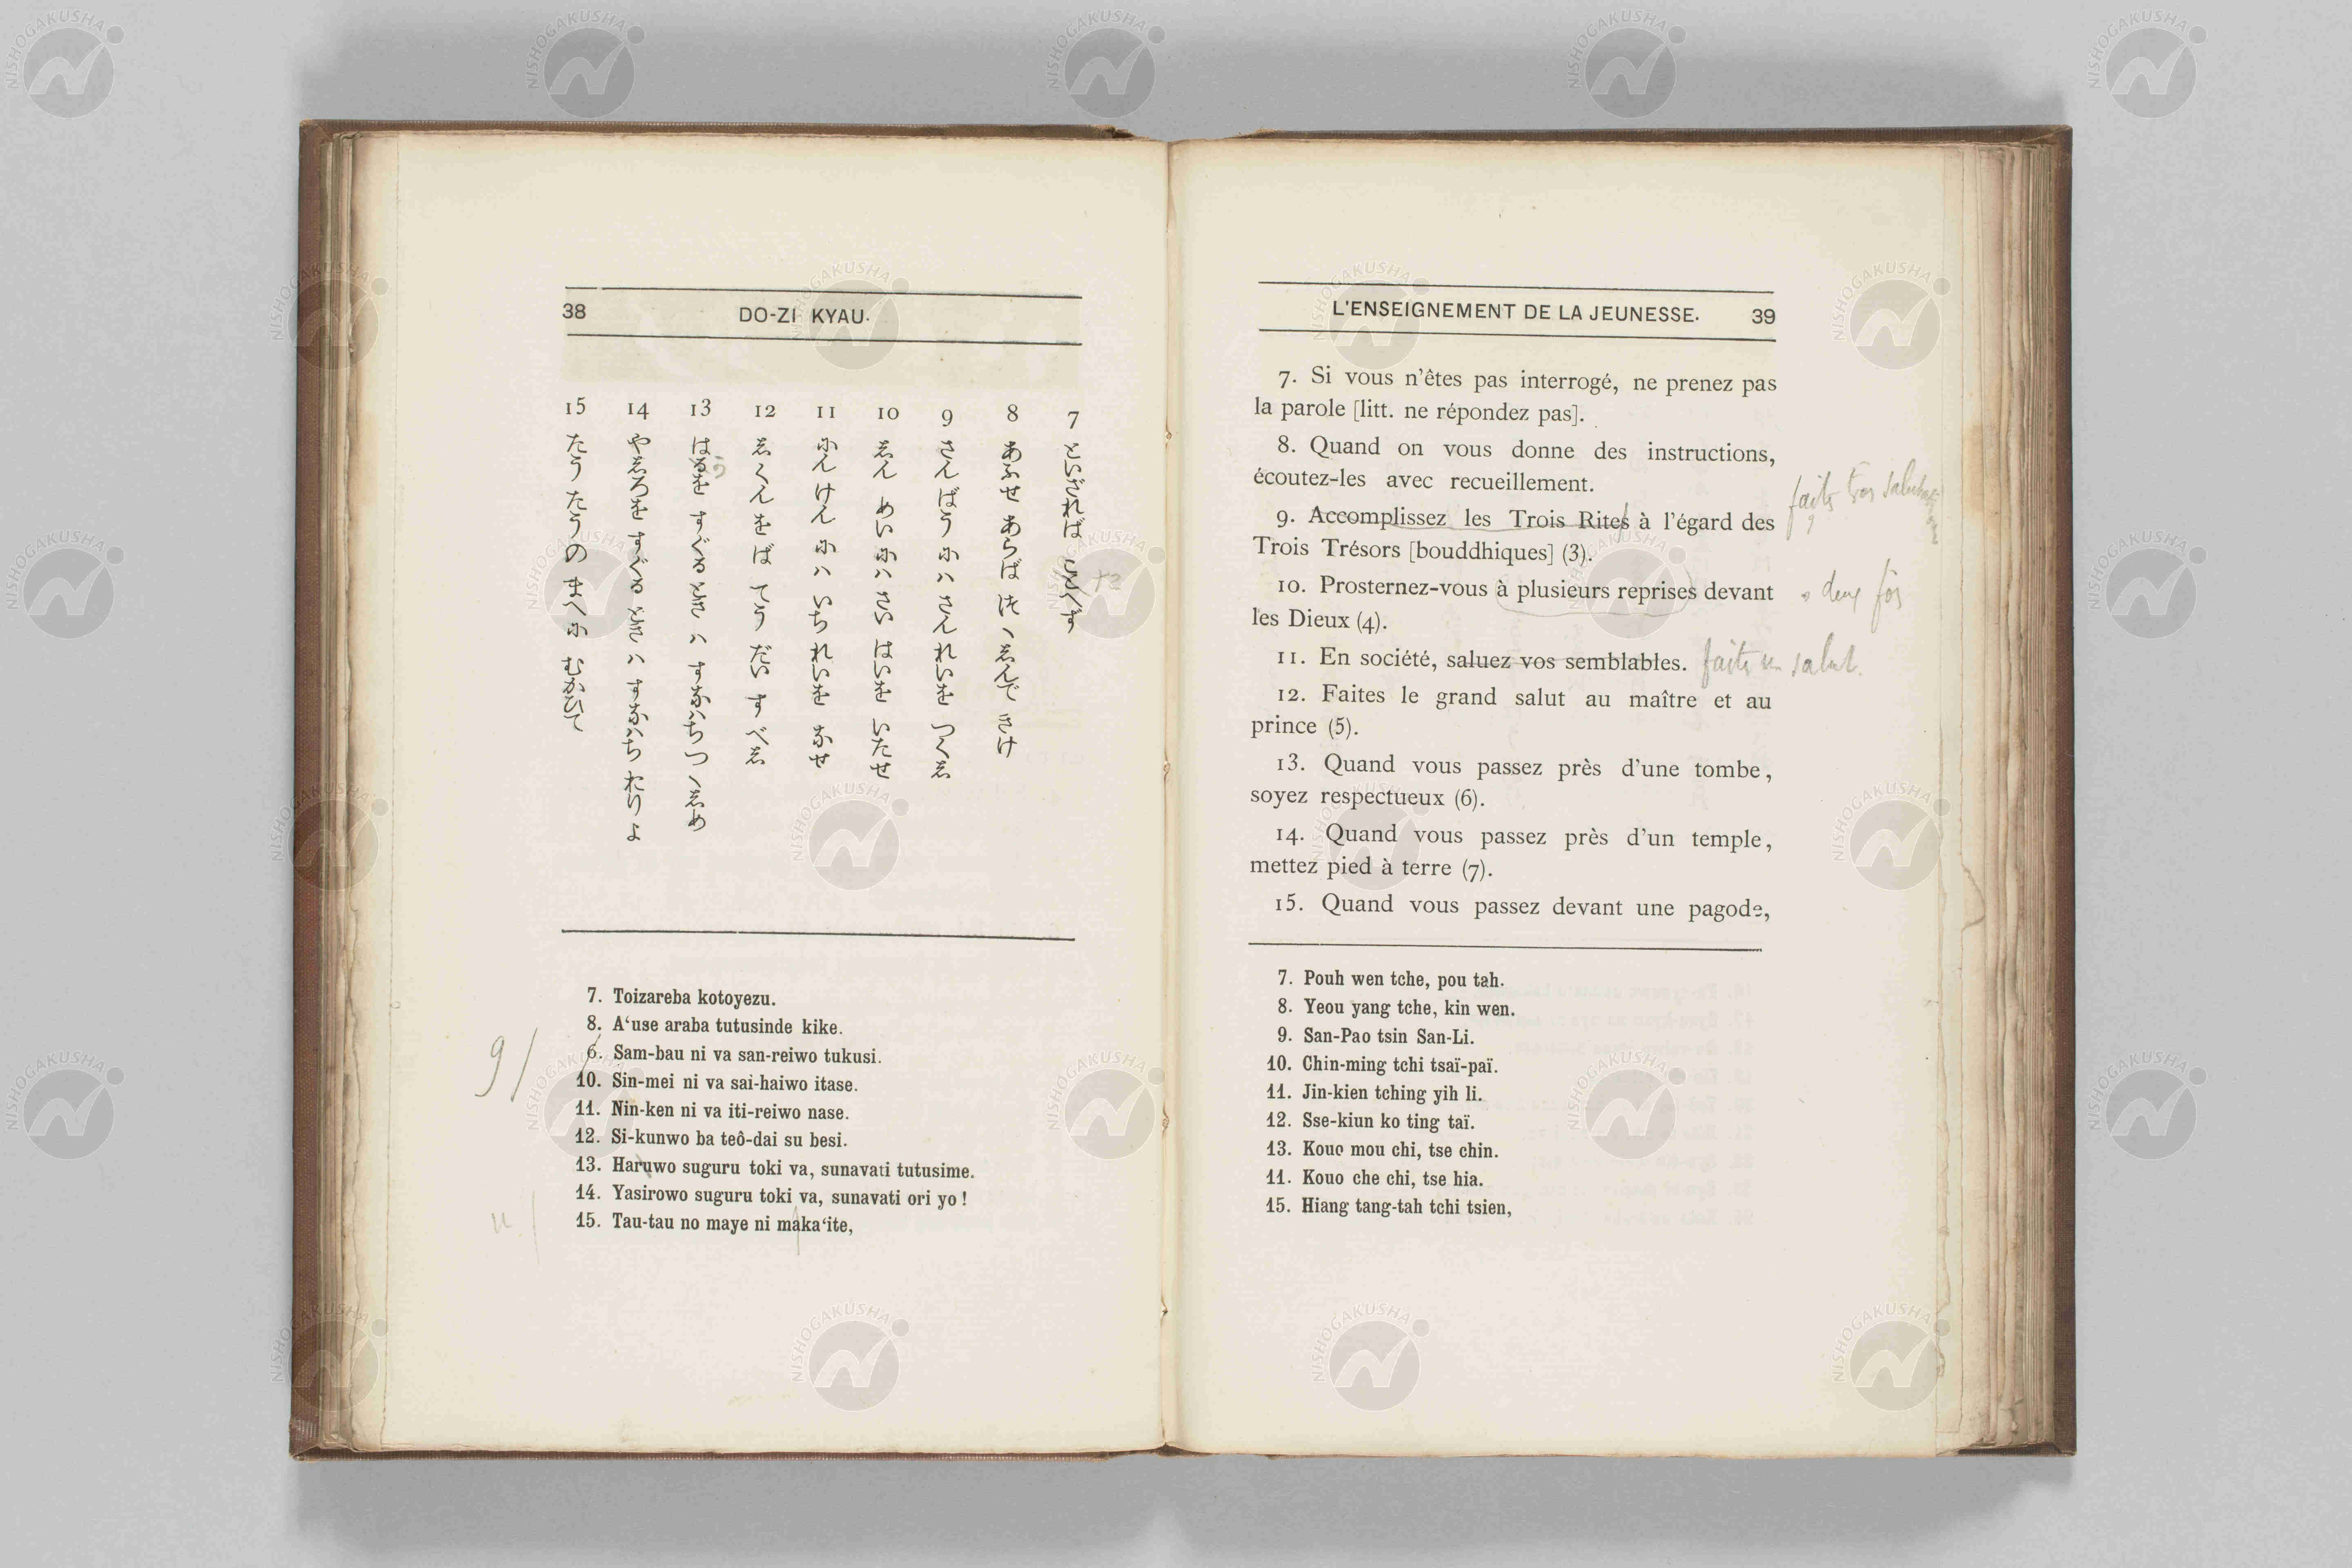 38 DO-ZI KYAU.
7 とハざれば こたへず
8 あふせ あらば つゝしんで きけ
9 さんばう にハ さんれいを つくし
10 しん めい にハ さい はいを いたせ
11 にん けん にハ いち れいを なせ
12 し くん を ば てう だい す べし
13 はるを すぐる ときハ すなハち つゝしめ
14 やしろを すぐる ときハ すなハち おりよ
15 たう たうの まへに むかひて
7. Toizareba kotoyezu.
8. A‘use araba tutusinde kike.
6. Sam-bau ni va san-reiwo tukusi.
10. Sin-mei ni va sai-haiwo itase.
11. Nin-ken ni va iti-reiwo nase.
12. Si-kunwo ba teô-dai su besi.
13. Haruwo suguru toki va, sunavati tutusime.
14. Yasirowo suguru toki va, sunavati ori yo !
15. Tau-tau no maye ni maka‘ite,
9/
u /
L'ENSEIGNEMENT DE LA JEUNESSE. 39
7. Si vous n'êtes pas interrogé, ne prenez pas
la parole [litt. ne répondez pas].
8. Quand on vous donne des instructions,
écoutez-les avec recueillement.
9. Accomplissez les Trois Rites à l'égard des
faites trois salutations
Trois Trésors [bouddhiques] (3).
10. Prosternez-vous à plusieurs reprises devant
deux fois
les Dieux (4).
11. En société, saluez vos semblables. faites un salut.
12. Faites le grand salut au maître et au
prince (5).
13. Quand vous passez près d'une tombe,
soyez respectueux (6).
14. Quand vous passez près d'un temple,
mettez pied à terre (7).
15. Quand vous passez devant une pagode,
7. Pouh wen tche, pou tah.
8. Yeou yang tche, kin wen.
9. San-Pao tsin San-Li.
10. Chin-ming tchi tsaï-paï.
11. Jin-kien tching yih li.
12. Sse-kiun ko ting taï.
13. Kouo mou chi, tse chin.
11. Kouo che chi, tse hia.
15. Hiang tang-tah tchi tsien,
NISHOGAKUSHA